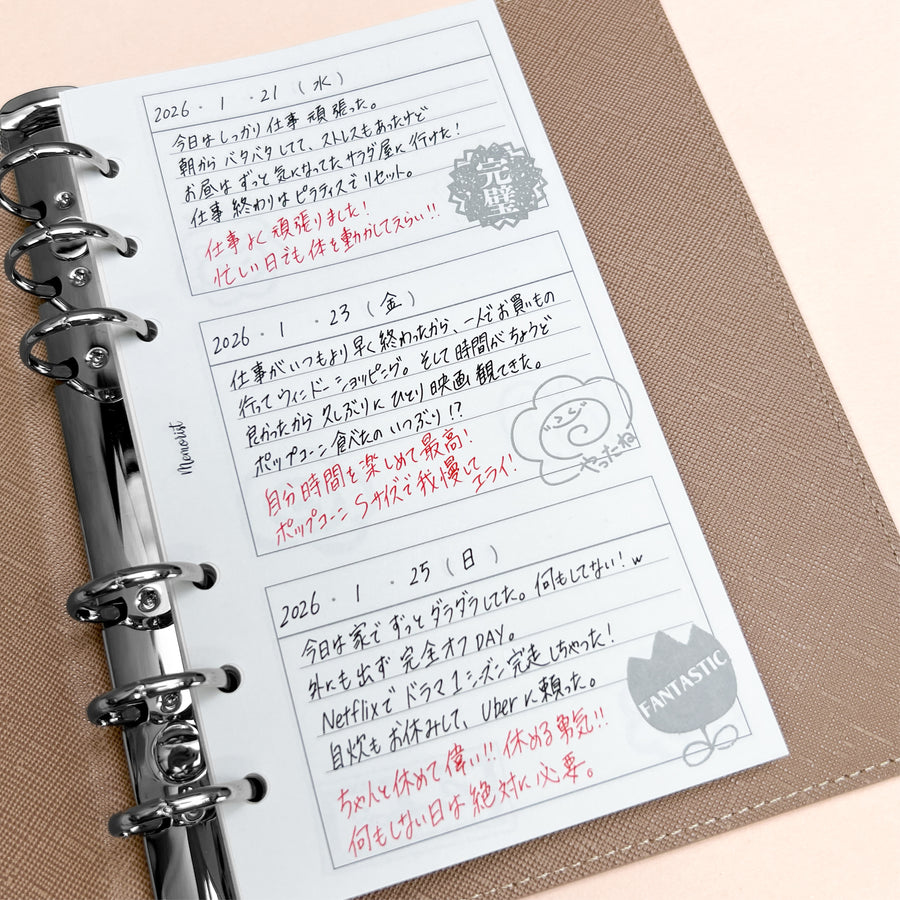 2026・1・21(水)
今日はしっかり仕事頑張った。
朝からバタバタしてて、ストレスもあったけど
お昼はずっと気になってたサラダ屋に行けた！
仕事終わりはピラティスでリセット。
仕事よく頑張りました！
忙しい日でも体を動かしてえらい!!
完璧
2026・1・23(金)
仕事がいつもより早く終わったから、一人でお買いもの
行ってウィンドーショッピング。そして時間がちょうど
良かったから久しぶりにひとり映画観てきた。
ポップコーン食べたのいつぶり!?
自分時間を楽しめて最高！
ポップコーンSサイズで我慢してエライ！
やったね
Memorist
2026・1・25(日)
今日は家でずっとダラダラしてた。何もしてない！w
外にも出ず完全オフDAY。
Netflixでドラマ1シーズン完走しちゃった！
自炊もお休みして、Uberに頼った。
ちゃんと休めて偉い!!休める勇気!!
何もしない日は絶対に必要。
FANTASTIC